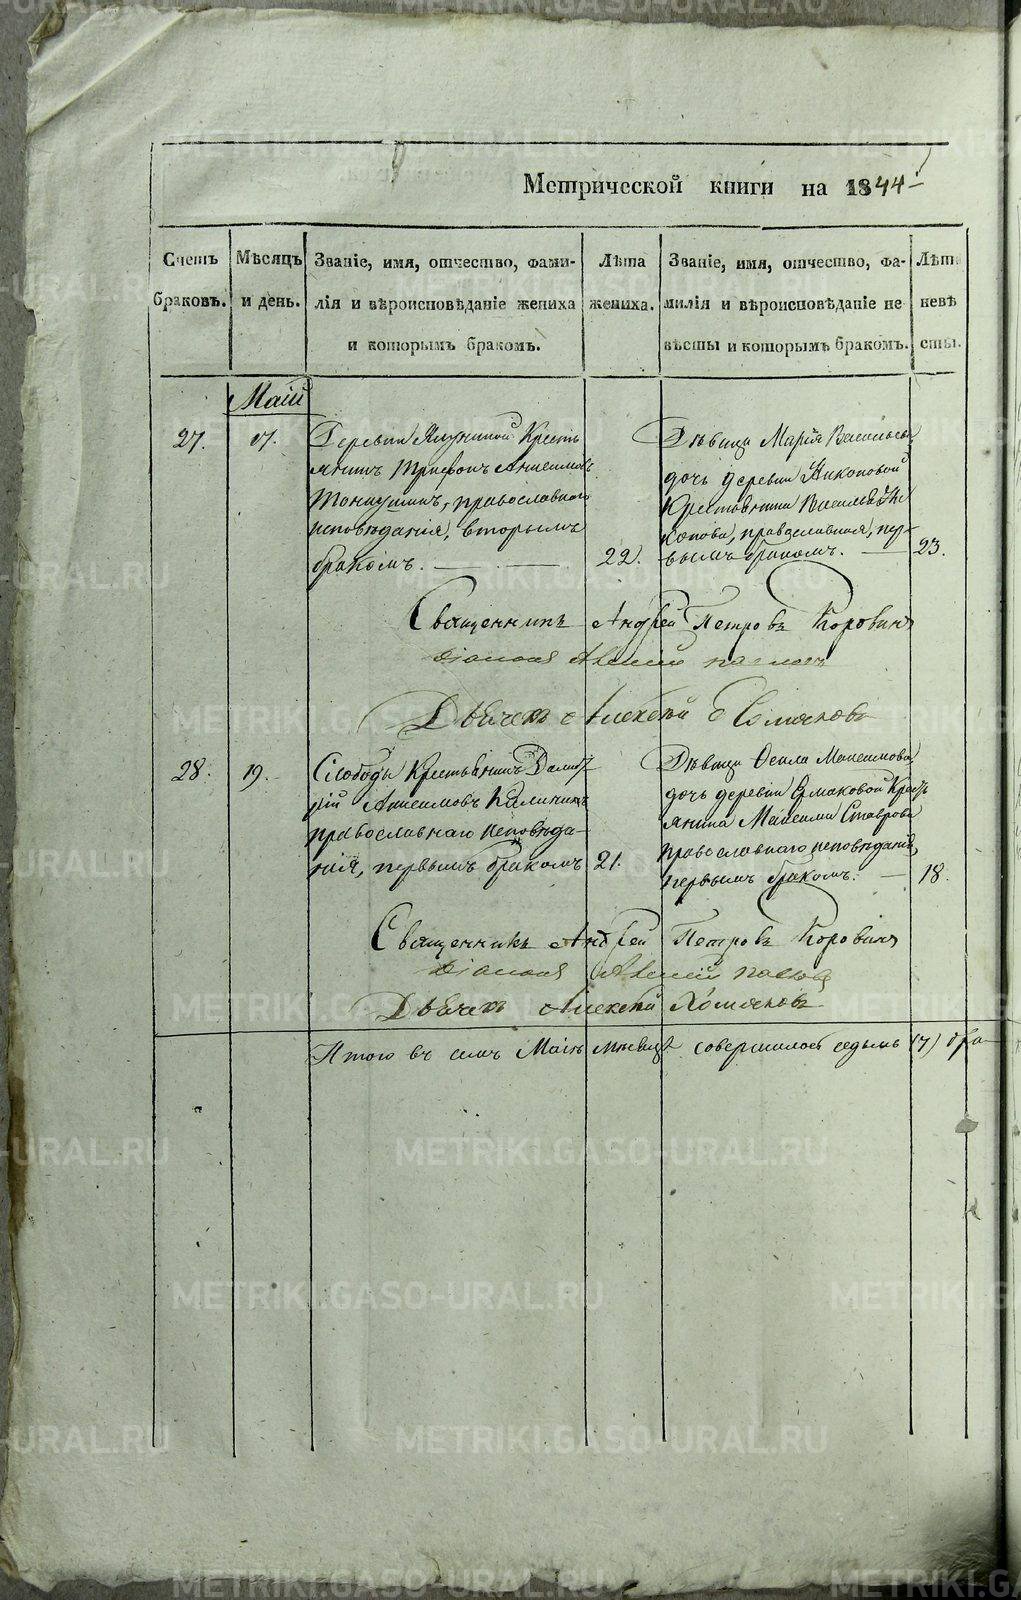 Метрической книги на 1844
Счетъ браковъ.
Мѣсяцъ и день.
Званіе, имя, отчество, фами-
лія и вѣроисповѣданіе жениха
и которымъ бракомъ.
Лѣта жениха.
Званіе, имя, отчество, фа-
милія и вѣроисповѣданіе не-
вѣсты и которымъ бракомъ.
Лѣта невѣ
сты.
Маій
27.
Деревни Кресть
янинъ Трифонъ Анисимовъ
православнаго
исповѣданія, вторымъ
бракомъ.
22.
Дѣвица Марія Васильева
дочь деревни Никоновой
Крестьянина Василья Ни
конова, православная, пер-
вымъ бракомъ.
23.
Священникъ Андрей Петровъ Коровинъ
Діаконъ Алексій
Дьячекъ Алексѣй Хомяковъ
28.
19.
Слободы Крестьянинъ Димит
рій Анисимовъ Калининъ
православнаго исповѣда-
нія, первымъ бракомъ
21.
Дѣвица Максимова
дочь деревни Ермаковой Кресть
янина Максима Ставрова
православнаго исповѣданія,
первымъ бракомъ.
18.
Священникъ Андрей Петровъ Коровинъ
Діаконъ Алексій
Дьячекъ Алексѣй Хомяковъ
Итого въ семъ Маіѣ мѣсяцѣ совершилось седьмь (7) бра-
METRIKI.GASO-URAL.RU